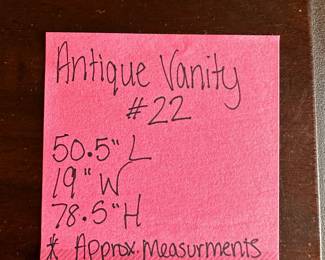 Antique Vanity
#22
50.5" L
19" W
78.5" H
* Approx. Measurments